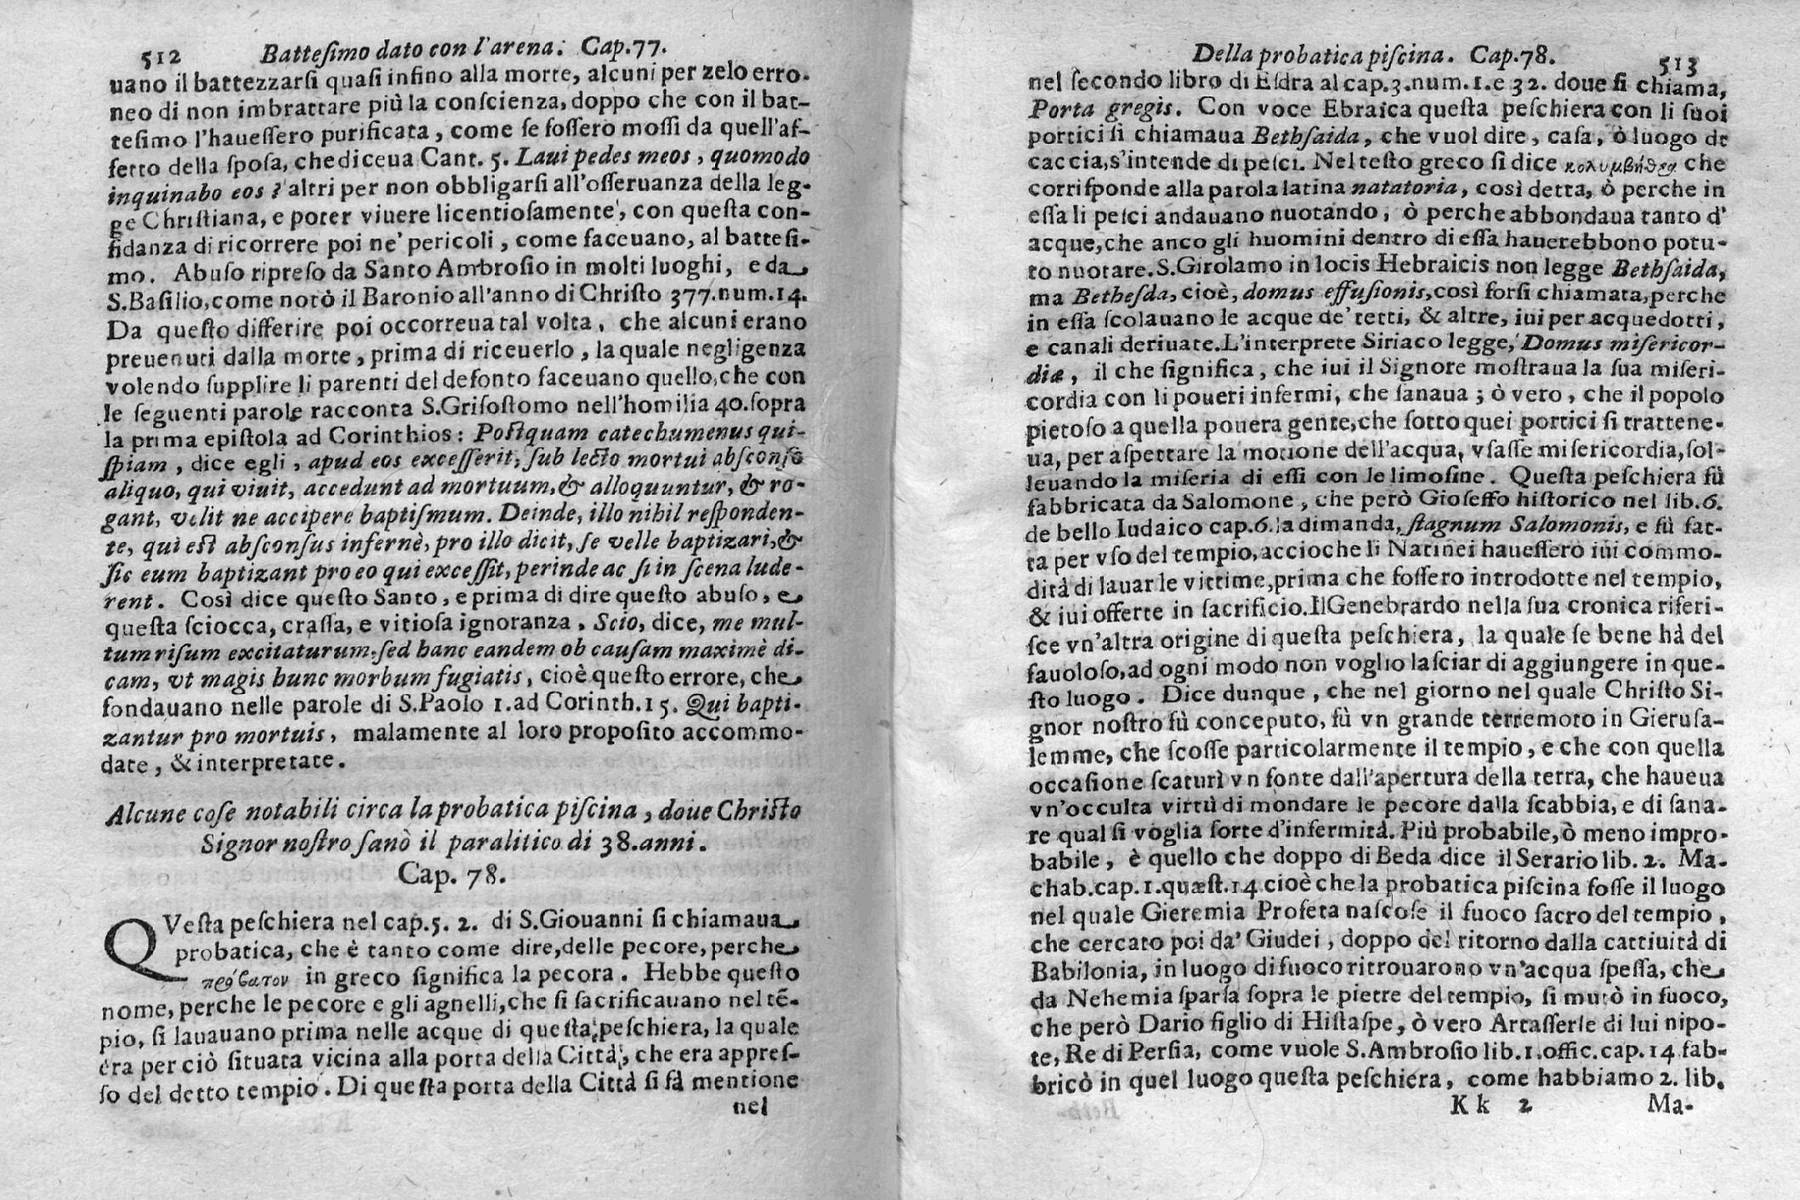 512 Battesimo dato con l'arena. Cap.77.
uano il battezzarsi quasi infino alla morte, alcuni per zelo erro-
neo di non imbrattare più la conscienza, doppo che con il bat-
tesimo l'hauessero purificata, come se fossero mossi da quell'af-
fetto della sposa, che diceua Cant. 5. Laui pedes meos, quomodo
inquinabo eos? altri per non obbligarsi all'osseruanza della leg-
ge Christiana, e poter viuere licentiosamente, con questa con-
fidanza di ricorrere poi ne' pericoli, come faceuano, al battesi-
mo. Abuso ripreso da Santo Ambrosio in molti luoghi, e da
S.Basilio, come notò il Baronio all'anno di Christo 377.num.14.
Da questo differire poi occorreua tal volta, che alcuni erano
preuenuti dalla morte, prima di riceuerlo, la quale negligenza
volendo supplire li parenti del defonto faceuano quello, che con
le seguenti parole racconta S.Grisostomo nell'homilia 40.sopra
la prima epistola ad Corinthios: Postquam catechumenus qui-
spiam, dice egli, apud eos excesserit, sub lecto mortui absconso
aliquo, qui viuit, accedunt ad mortuum, & alloquuntur, & ro-
gant, velit ne accipere baptismum. Deinde, illo nihil responden-
te, qui est absconsus infernè, pro illo dicit, se velle baptizari, &
sic eum baptizant pro eo qui excessit, perinde ac si in scena lude-
rent. Così dice questo Santo, e prima di dire questo abuso, e
questa sciocca, crassa, e vitiosa ignoranza. Scio, dice, me mul-
tum risum excitaturum, sed hanc eandem ob causam maximè di-
cam, vt magis hunc morbum fugiatis, cioè questo errore, che
fondauano nelle parole di S.Paolo 1.ad Corinth.15. Qui bapti-
zantur pro mortuis, malamente al loro proposito accommo-
date, & interpretate.
Alcune cose notabili circa la probatica piscina, doue Christo
Signor nostro sanò il paralitico di 38.anni.
Cap. 78.
QVesta peschiera nel cap.5. 2. di S.Giouanni si chiamaua
probatica, che è tanto come dire, delle pecore, perche
πρόβατον in greco significa la pecora. Hebbe questo
nome, perche le pecore e gli agnelli, che si sacrificauano nel tē-
pio, si lauauano prima nelle acque di questa peschiera, la quale
era per ciò situata vicina alla porta della Città, che era appres-
so del detto tempio. Di questa porta della Città si fà mentione
nel
Della probatica piscina. Cap.78. 513
nel secondo libro di Esdra al cap.3.num.1.e 32. doue si chiama,
Porta gregis. Con voce Ebraica questa peschiera con li suoi
portici si chiamaua Bethsaida, che vuol dire, casa, ò luogo de
caccia, s'intende di pesci. Nel testo greco si dice κολυμβήθρα che
corrisponde alla parola latina natatoria, così detta, ò perche in
essa li pesci andauano nuotando, ò perche abbondaua tanto d'
acque, che anco gli huomini dentro di essa hauerebbono potu-
to nuotare. S.Girolamo in locis Hebraicis non legge Bethsaida,
ma Bethesda, cioè, domus effusionis, così forsi chiamata, perche
in essa scolauano le acque de' tetti, & altre, iui per acquedotti,
e canali deriuate. L'interprete Siriaco legge, Domus misericor-
diæ, il che significa, che iui il Signore mostraua la sua miseri-
cordia con li poueri infermi, che sanaua; ò vero, che il popolo
pietoso a quella pouera gente, che sotto quei portici si trattene-
ua, per aspettare la motione dell'acqua, vsasse misericordia, sol-
leuando la miseria di essi con le limosine. Questa peschiera fù
fabbricata da Salomone, che però Gioseffo historico nel lib.6.
de bello Iudaico cap.6. la dimanda, stagnum Salomonis, e fù fat-
ta per vso del tempio, accioche li Natinei hauessero iui commo-
dità di lauar le vittime, prima che fossero introdotte nel tempio,
& iui offerte in sacrificio. Il Genebrardo nella sua cronica riferi-
sce vn'altra origine di questa peschiera, la quale se bene hà del
fauoloso, ad ogni modo non voglio lasciar di aggiungere in que-
sto luogo. Dice dunque, che nel giorno nel quale Christo Si-
gnor nostro fù conceputo, fù vn grande terremoto in Gierusa-
lemme, che scosse particolarmente il tempio, e che con quella
occasione scaturì vn fonte dall'apertura della terra, che haueua
vn'occulta virtù di mondare le pecore dalla scabbia, e di sana-
re qual si voglia sorte d'infermità. Più probabile, ò meno impro-
babile, è quello che doppo di Beda dice il Serario lib. 2. Ma-
chab.cap.1.quæst.14.cioè che la probatica piscina fosse il luogo
nel quale Gieremia Profeta nascose il fuoco sacro del tempio,
che cercato poi da' Giudei, doppo del ritorno dalla cattiuità di
Babilonia, in luogo di fuoco ritrouarono vn'acqua spessa, che
da Nehemia sparsa sopra le pietre del tempio, si mutò in fuoco,
che però Dario figlio di Histaspe, ò vero Artasserse di lui nipo-
te, Re di Persia, come vuole S.Ambrosio lib.1.offic.cap.14 fab-
bricò in quel luogo questa peschiera, come habbiamo 2. lib.
Kk 2 Ma-